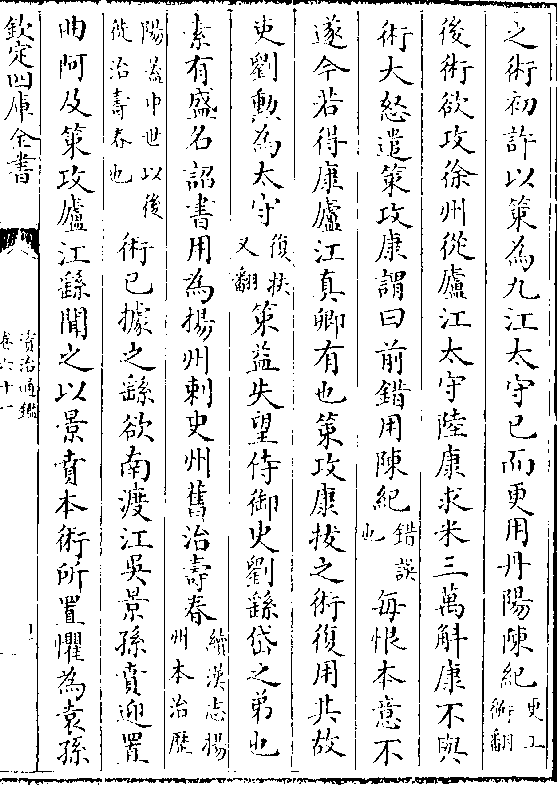 之術初許以策為九江太守已而更用丹陽陳紀更工衡翻
後術欲攻徐州從廬江太守陸康求米三萬斛康不與
術大怒遣策攻康謂曰前錯用陳紀錯誤也每恨本意不
遂今若得康廬江真卿有也策攻康拔之術復用其故
吏劉勳為太守復扶又翻策益失望侍御史劉繇岱之弟也
素有盛名詔書用為揚州刺史州舊治壽春續漢志揚州本治歷
陽蓋中世以後徙治壽春也術已據之繇欲南渡江吳景孫賁迎置
曲阿及策攻廬江繇聞之以景賁本術所置懼為袁孫
欽定四庫全書
資治通鑑
卷六十一